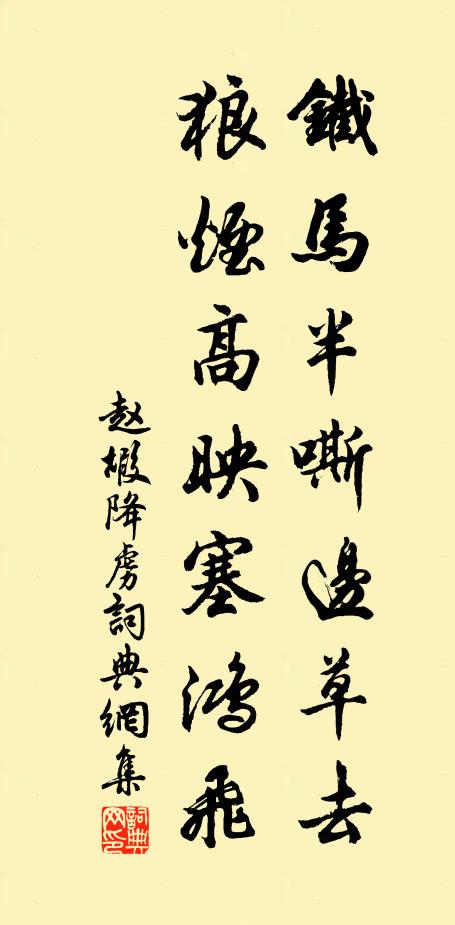 鐵馬半嘶邊草去
狼煙高映塞鴻飛
赵嘏降虜詞典網集
詞典网印